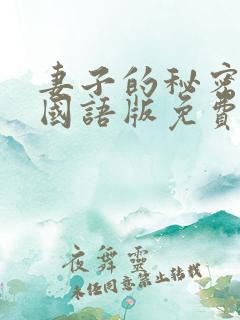 妻子的秘密
國語版免費
夜舞靈
未经同意禁止转载